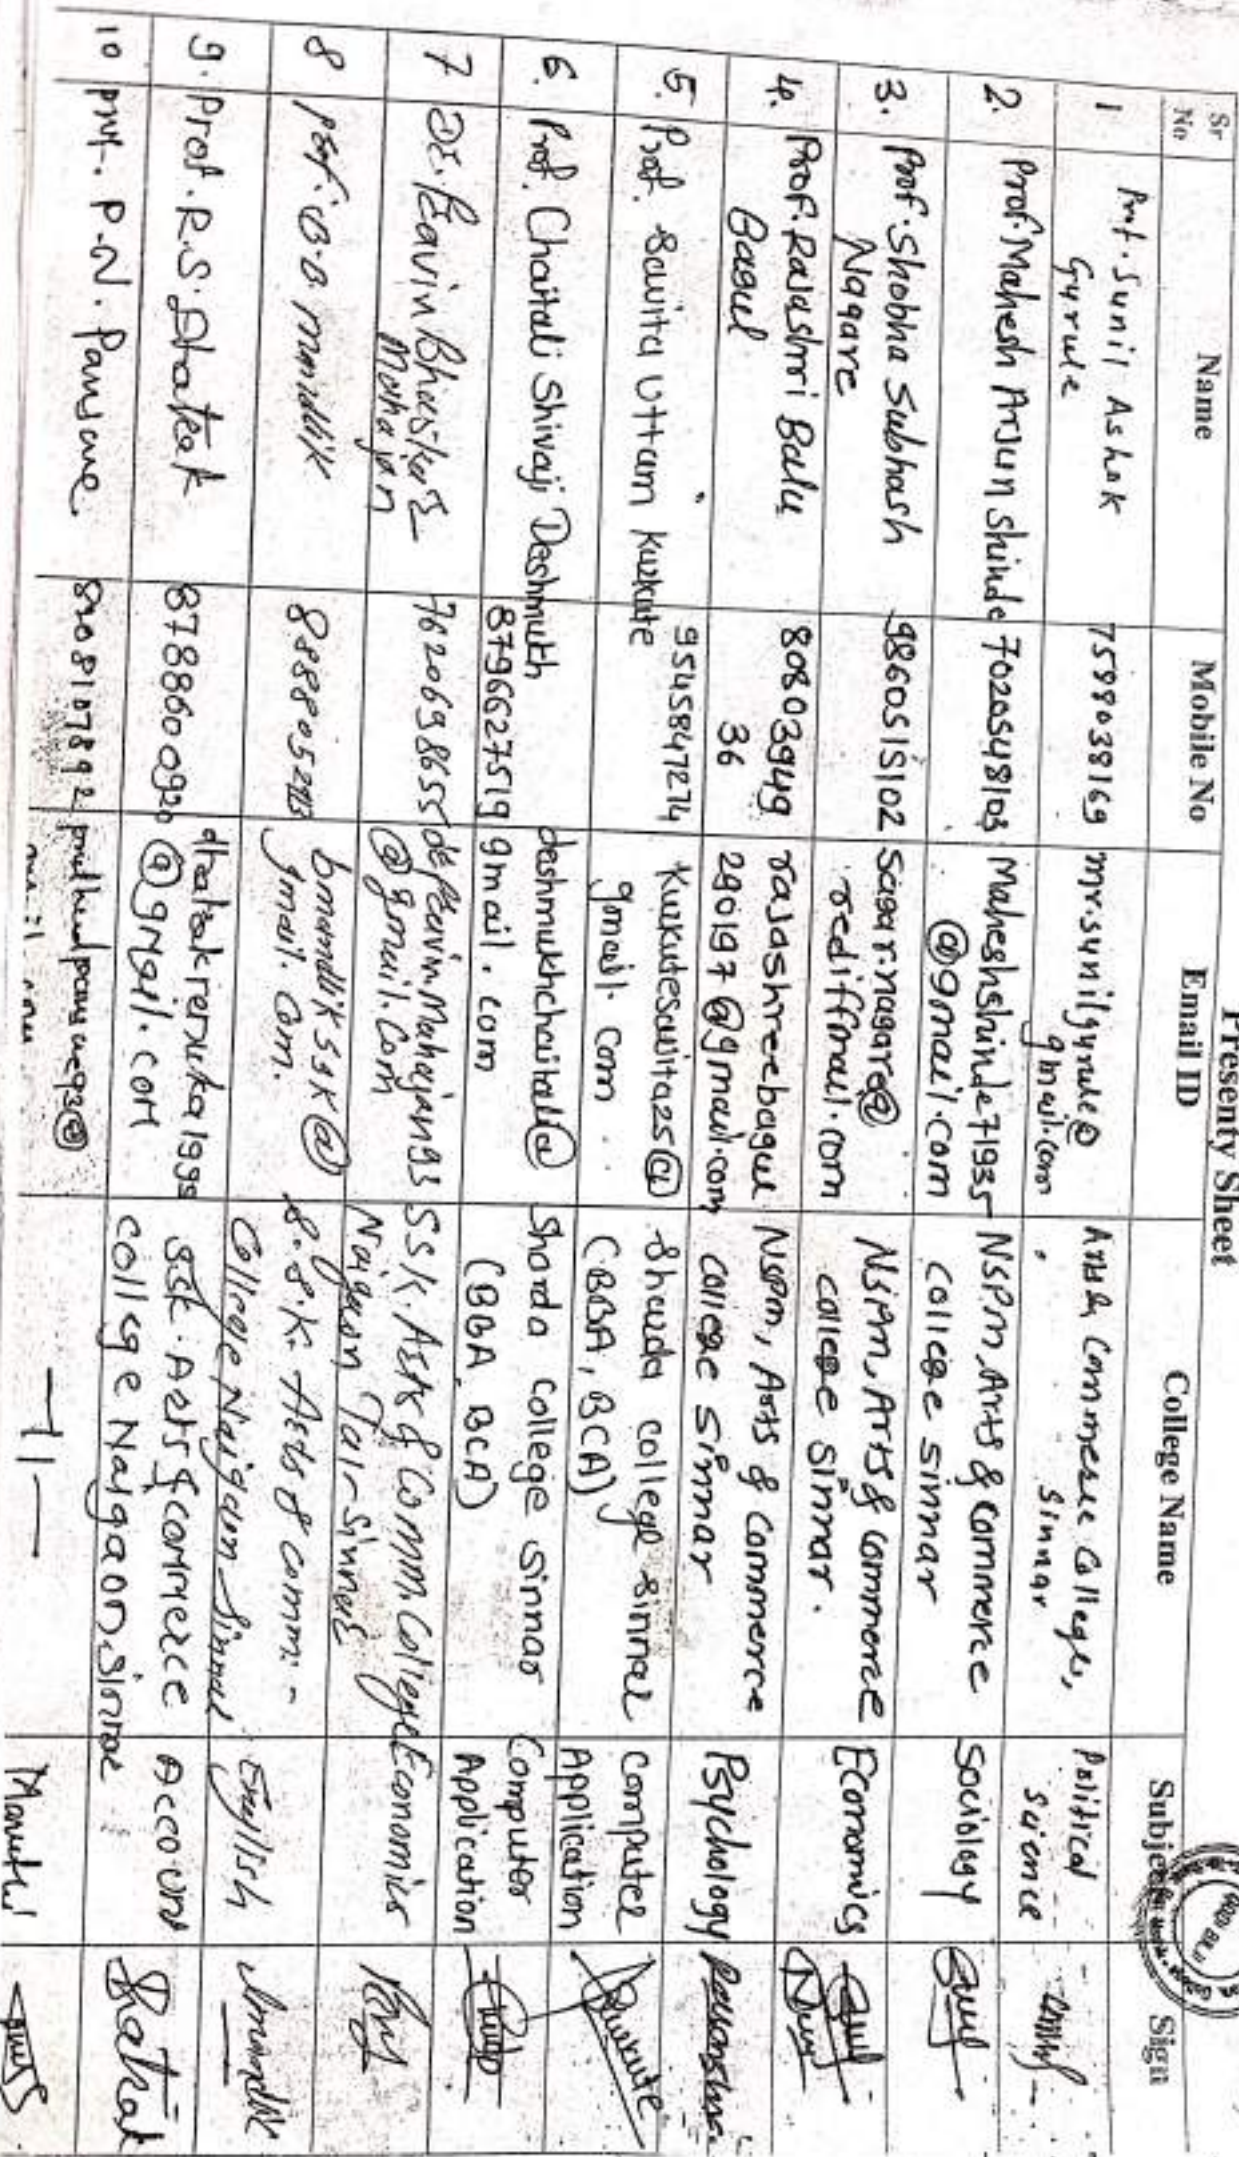 Presenty Sheet
Sr No Name Mobile No Email ID College Name Subject Sign
1 Prof. Sunil Ashok Gyrule 7598038169 mr.sunilgyrule@gmail.com Arts & Commerce College, Sinnar Political science
2. Prof. Mahesh Arjun Shinde 7020548103 Maheshshinde71935@gmail.com NSPM, Arts & Commerce college sinnar Sociology
3. Prof. Shobha Subhash Nagare 9860515102 sagar.nagare@rediffmail.com NSPM, Arts & commerce college sinnar. Economics
4. Prof. Rajashri Balu Bagul 8080394936 rajashreebagul290197@gmail.com NSPM, Arts & Commerce college sinnar Psychology
5. Prof. Savita Uttam Kukate 9545847274 Kukutesavita25@gmail.com Sharda college sinnar (BBA, BCA) Computer Application
6. Prof. Chaitali Shivaji Deshmukh 8796627519 deshmukhchaitali@gmail.com Sharda college sinnar (BBA, BCA) Computer Application
7 Dr. Pavin Bhaskar Mahajan 7620698655 dr.pavin.mahajan93@gmail.com SSK. Arts & Comm. College Naigaon Tal-Sinnar Economics
8 Prof. B.D mandlik 8888052 bmandlikssk@gmail.com. S.S.K. Arts & comm- College Naigaon Sinnar English
9. Prof. R.S. Dhatrak 8788600920 dhatrakrenuka199@gmail.com SSK. Arts & commerce college Naigaon, Sinnar Account
10 Prof. P.N. Pansare 9108107892 —11—